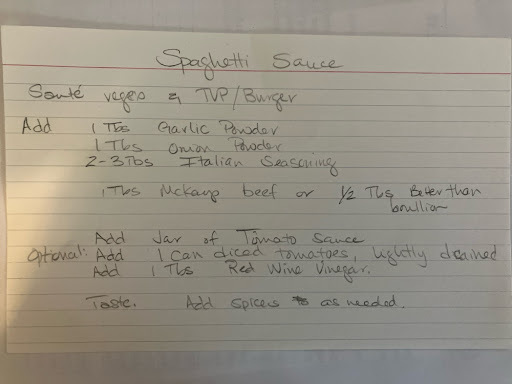 Spaghetti Sauce
Sauté veges & TVP/Burger
Add 1 Tbs Garlic Powder
1 Tbs Onion Powder
2-3 Tbs Italian Seasoning
1 Tbs McKays beef or 1/2 Tbs Better than
boullion
Add Jar of Tomato Sauce
Optional: Add 1 can diced tomatoes, lightly drained
Add 1 Tbs Red Wine Vinegar.
Taste. Add spices as needed.